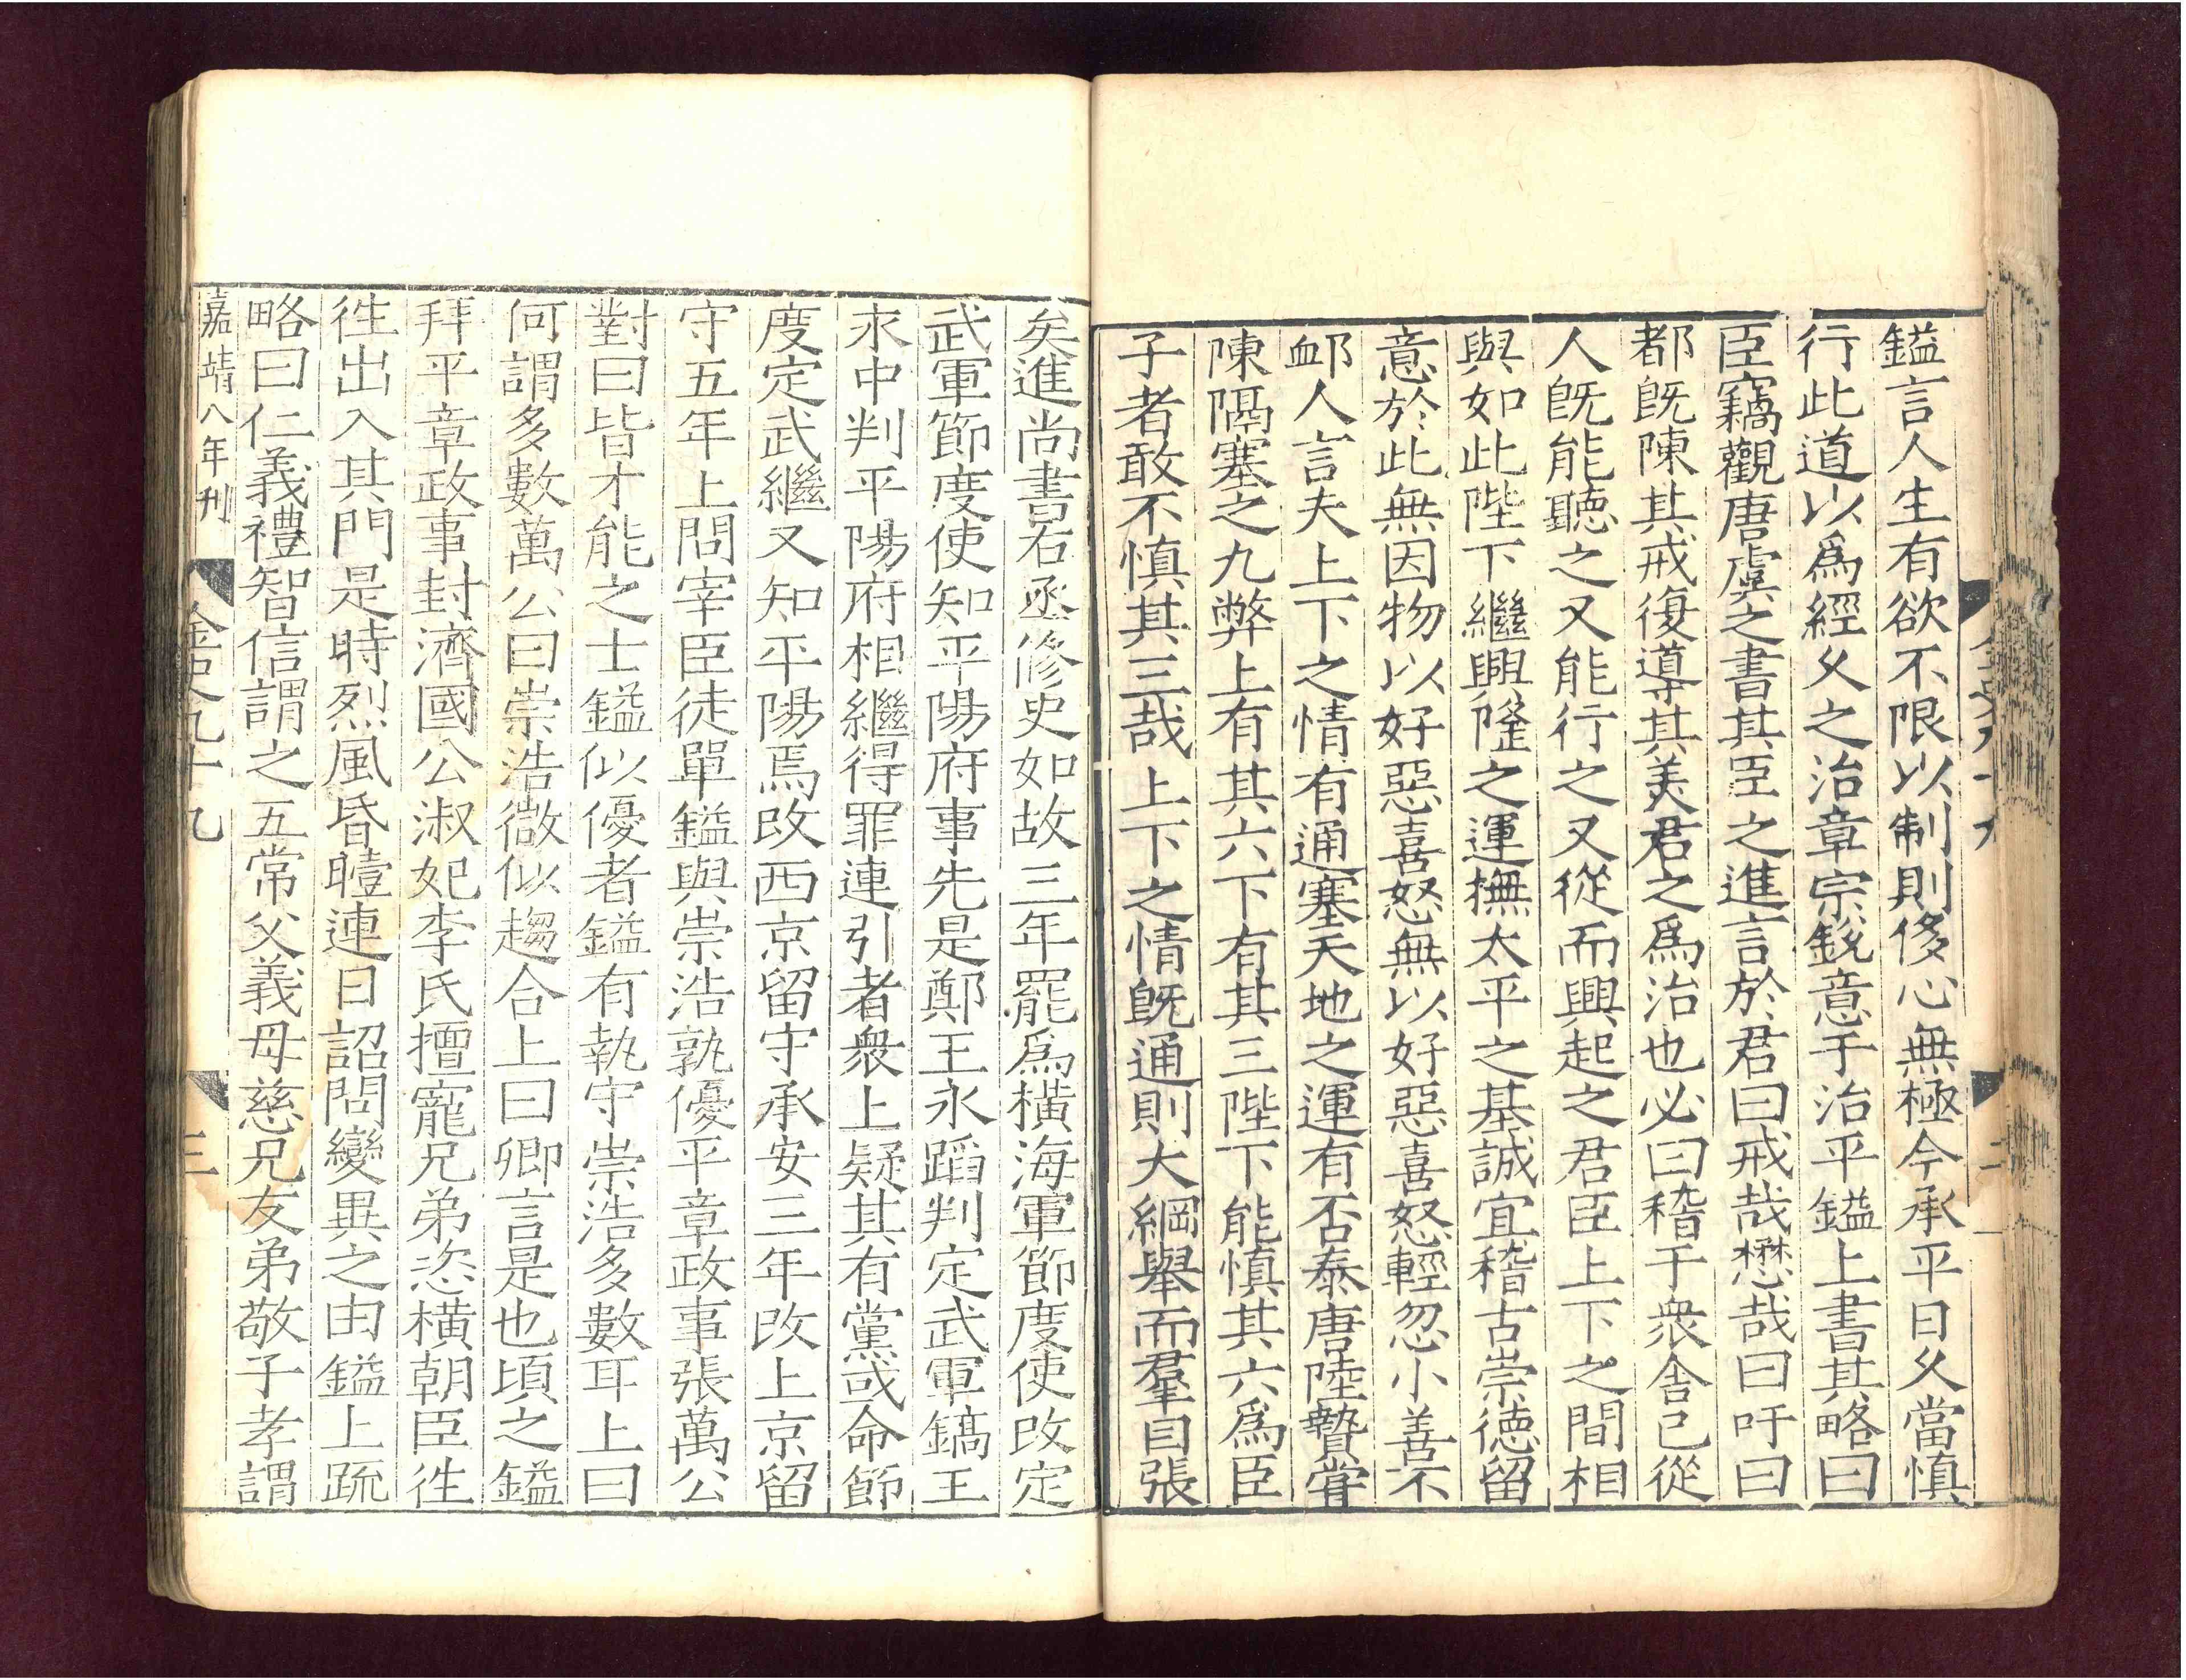 鎰言人生有欲不限以制則侈心無極今承平日久當慎
行此道以爲經久之治章宗銳意于治平鎰上書其略曰
臣竊觀唐虞之書其臣之進言於君曰戒哉懋哉曰吁曰
都旣陳其戒復導其美君之爲治也必曰稽于衆舍己從
人旣能聽之又能行之又從而興起之君臣上下之間相
與如此陛下繼興隆之運撫太平之基誠宜稽古崇德留
意於此無因物以好惡喜怒無以好惡喜怒輕忽小善不
卹人言夫上下之情有通塞天地之運有否泰唐陸贄嘗
陳隔塞之九弊上有其六下有其三陛下能慎其六爲臣
子者敢不慎其三哉上下之情旣通則大綱舉而羣目張
矣進尚書右丞修史如故三年罷爲橫海軍節度使改定
武軍節度使知平陽府事先是鄭王永蹈判定武軍鎬王
永中判平陽府相繼得罪連引者衆上疑其有黨或命節
度定武繼又知平陽焉改西京留守承安三年改上京留
守五年上問宰臣徒單鎰與崇浩孰優平章政事張萬公
對曰皆才能之士鎰似優者鎰有執守崇浩多數耳上曰
何謂多數萬公曰崇浩微似趨合上曰卿言是也頃之鎰
拜平章政事封濟國公淑妃李氏擅寵兄弟恣橫朝臣徃
徃出入其門是時烈風昏曀連日詔問變異之由鎰上疏
略曰仁義禮智信謂之五常父義母慈兄友弟敬子孝謂
嘉靖八年刊
金史九十九
三